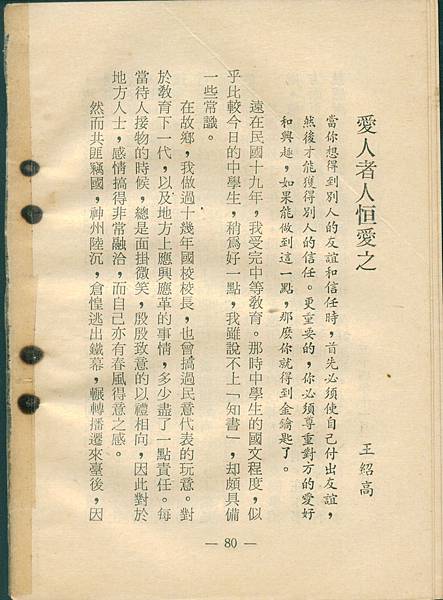 愛人者人恒愛之
王紹高
當你想得到別人的友誼和信任時，首先必須使自己付出友誼，
然後才能獲得別人的信任。更重要的，你必須尊重對方的愛好
和興趣，如果能做到這一點，那麼你就得到金鑰匙了。
遠在民國十九年，我受完中等教育。那時中學生的國文程度，似
乎比較今日的中學生，稍爲好一點，我雖說不上「知書」，却頗具備
一些常識。
在故鄉，我做過十幾年國校校長，也曾搞過民意代表的玩意。對
於教育下一代，以及地方上應興應革的事情，多少盡了一點責任。每
當待人接物的時候，總是面掛微笑，殷殷致意的以禮相向，因此對於
地方人士，感情搞得非常融洽，而自己亦有春風得意之感。
然而共匪竊國，神州陸沉，倉惶逃出鐵幕，輾轉播遷來臺後，因
— 80 —